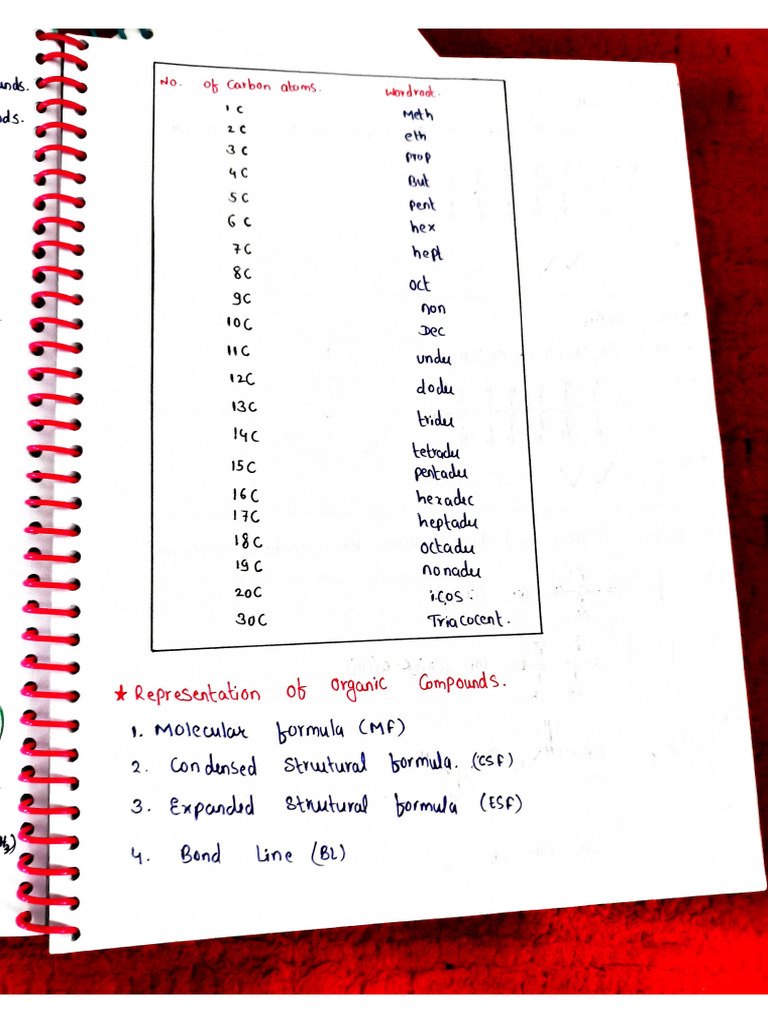 unds.
ds.
No. of Carbon atoms. Wordroot.
1C Meth
2C eth
3C prop
4C But
5C pent
6C hex
7C hept
8C oct
9C non
10C Dec
11C undec
12C dodec
13C tridec
14C tetradec
15C pentadec
16C hexadec
17C heptadec
18C octadec
19C nonadec
20C icos.
30C Triacocent.
★ Representation of Organic Compounds.
1. Molecular formula (MF)
2. Condensed Structural formula. (CSF)
3. Expanded Structural formula (ESF)
4. Bond Line (BL)